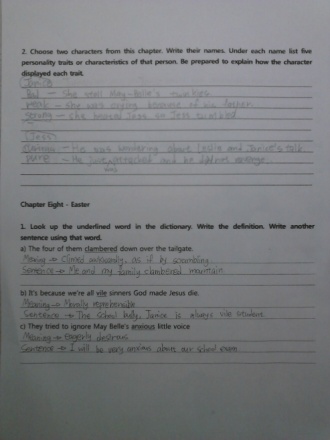 2. Choose two characters from this chapter. Write their names. Under each name list five
personality traits or characteristics of that person. Be prepared to explain how the character
displayed each trait.
Janice
Bad - She stole May-Belle's twinkies.
weak - She was crying because of his father.
strong - she beated Jess so Jess tumbled.
Jess
curious - He was wondering about Leslie and Janice's talk.
pure - He just and he
Chapter Eight - Easter
1. Look up the underlined word in the dictionary. Write the definition. Write another
sentence using that word.
a) The four of them clambered down over the tailgate.
Meaning → Climed awkwardly, as if by scrambling.
Sentence → Me and my family clambered mountain.
b) It's because we're all vile sinners God made Jesus die.
Meaning → Morally reprehensible
Sentence → The school bully, Janice is always vile student.
c) They tried to ignore May Belle's anxious little voice
Meaning → Eagerly desirous
Sentence → I will be very anxious about our school exam.